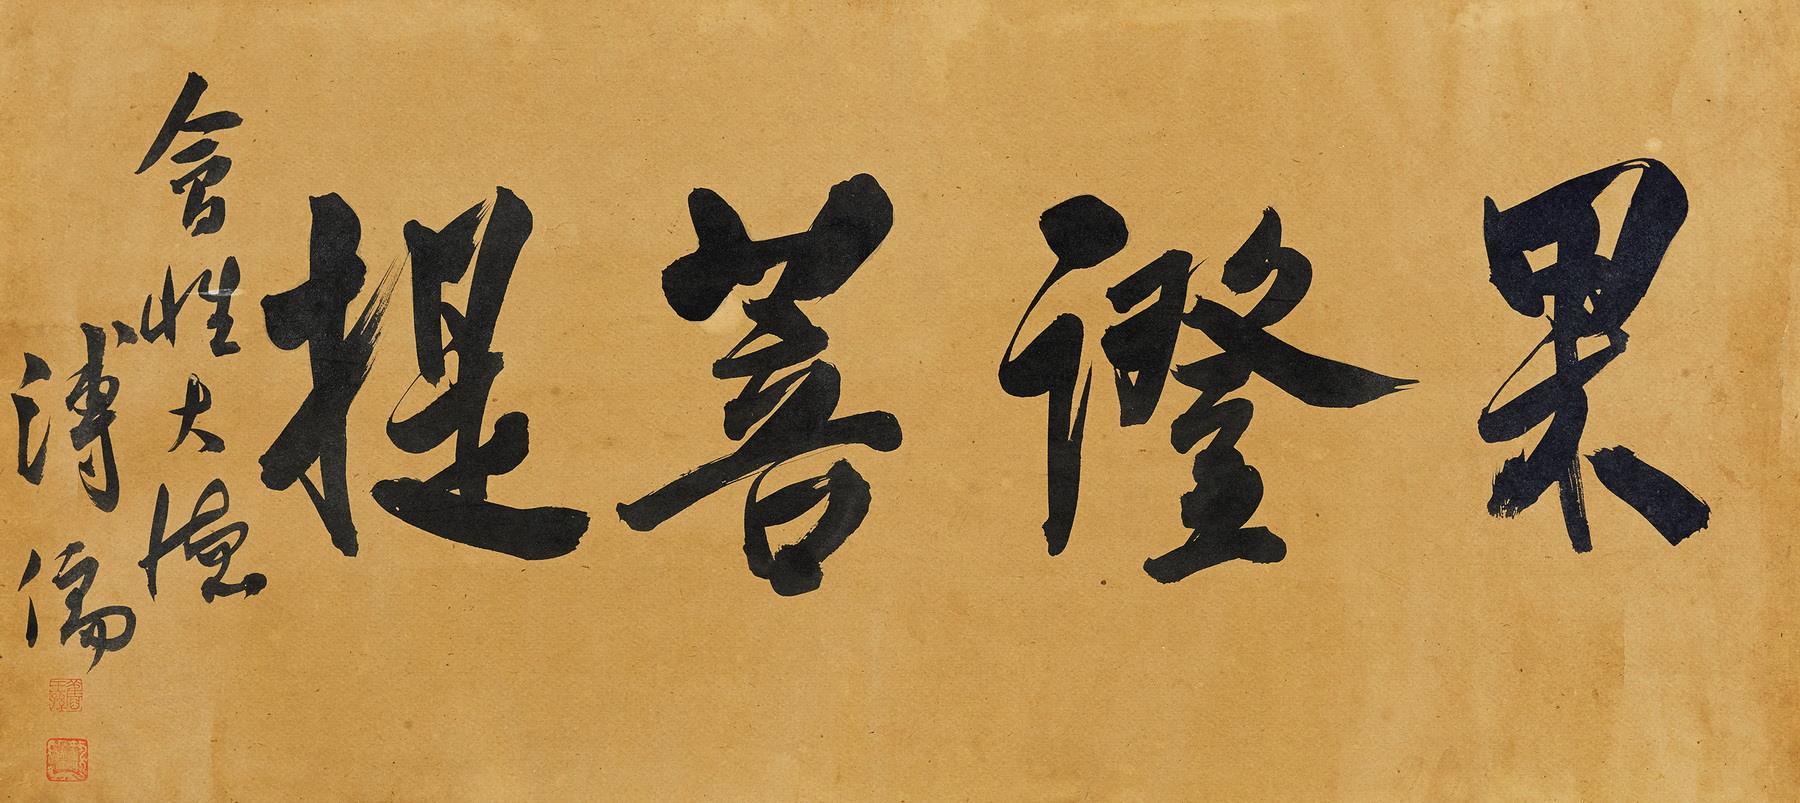 果證菩提
會性大德
溥儒